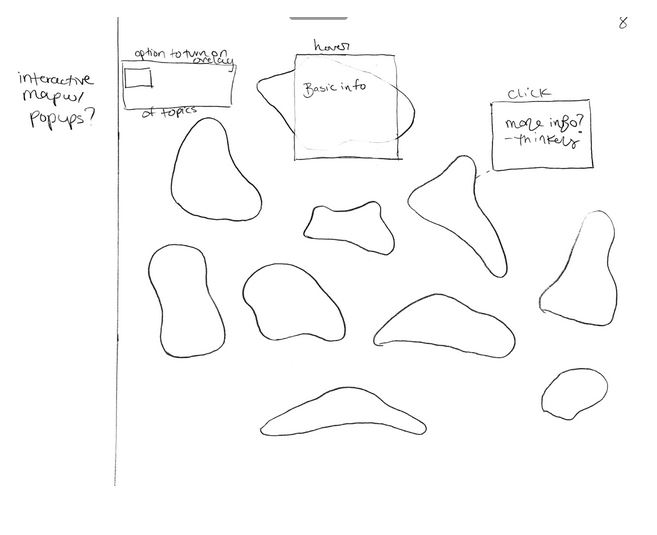 8
interactive
map w/
popups?
option to turn on
overlay
of topics
hover
Basic info
click
more info?
- thinkers